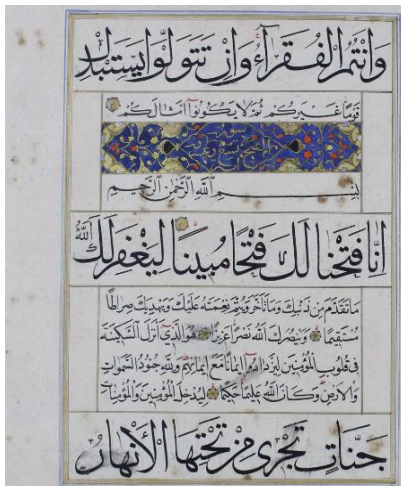 وَأَنْتُمُ الْفُقَرَآءُ وَإِنْ تَتَوَلَّوْا يَسْتَبْدِلْ
قَوْمًا غَيْرَكُمْ ثُمَّ لَا يَكُونُوٓا أَمْثَالَكُمْ
بِسْمِ ٱللَّهِ ٱلرَّحْمٰنِ ٱلرَّحِيمِ
إِنَّا فَتَحْنَا لَكَ فَتْحًا مُبِينًا لِيَغْفِرَ لَكَ اللَّهُ
مَا تَقَدَّمَ مِنْ ذَنْبِكَ وَمَا تَأَخَّرَ وَيُتِمَّ نِعْمَتَهُ عَلَيْكَ وَيَهْدِيَكَ صِرَاطًا
مُسْتَقِيمًا وَيَنْصُرَكَ اللَّهُ نَصْرًا عَزِيزًا هُوَ الَّذِي أَنْزَلَ السَّكِينَةَ
فِي قُلُوبِ الْمُؤْمِنِينَ لِيَزْدَادُوا إِيمَانًا مَعَ إِيمَانِهِمْ وَلِلَّهِ جُنُودُ السَّمٰوَاتِ
وَالْأَرْضِ وَكَانَ اللَّهُ عَلِيمًا حَكِيمًا لِيُدْخِلَ الْمُؤْمِنِينَ وَالْمُؤْمِنَاتِ
جَنَّاتٍ تَجْرِي مِنْ تَحْتِهَا الْأَنْهَارُ